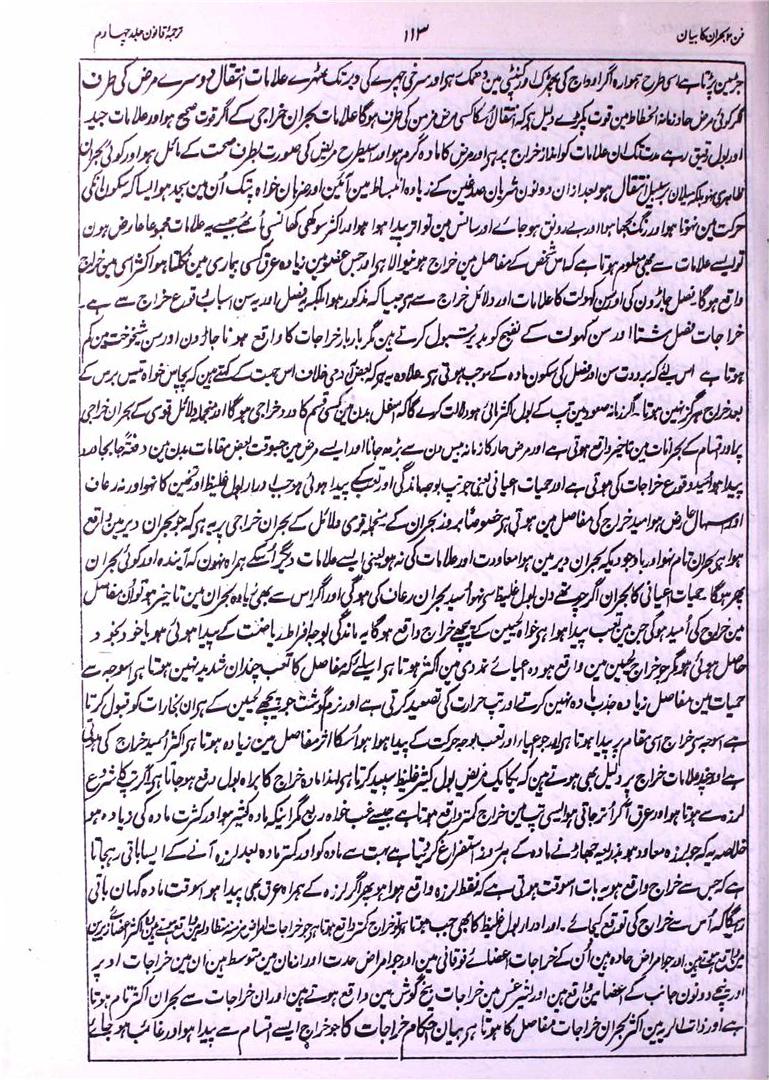 فن ۲ بحران کا بیان ۱۱۳ ترجمۂ قانون جلد چہارم
پڑتا ہے اسی طرح ہوا رہ اگر اوداج کی پھڑک اور کنپٹی مین دھمک ہو اور سرخی چہرے کی دیر تک ٹھہرے علامات انتقال دوسرے مرض کی طرف
اگر کوئی مرض حاد زمانہ انحطاط مین قوت پکڑے دلیل ہے کہ انتقال اُسکا کسی مرض مزمن کی طرف ہوگا علامات بحران خراجی کے اگر قوت صحیح ہو اور علامات جید
اور بول رقیق رہے مدت تک ان علامات کو انذار خراج پر ہے اور مرض کا مادہ گرم ہو اور سطرح مریض کی صورت بطرف صحت کے مائل ہو اور کوئی بحران
ظاہری نہو بلکہ بسبیل انتقال ہو بعد ازان دونون شریان صدغین کے زیادہ انبساط مین آئین اور ضربان خواہ تپک اُن مین بیحد ہو ایسا کہ سکون اُنکی
حرکت مین نہوتا ہو اور رنگ بجھا ہوا اور بے رونق ہو جائے اور سانس مین تواتر پیدا ہوا ہو اور اکثر سوکھی کھانسی اُٹھے جیسے یہ علامات مجموعاً عارض ہون
تو ایسے علامات سے بھی معلوم ہوتا ہے کہ اس شخص کے مفاصل مین خراج ہونیوالا ہے اور جس عضو مین زیادہ عرق کسی بیماری مین نکلتا ہو اکثر اسی مین خراج
واقع ہوگا۔ فصل جاڑون کی اور سن کہولت کا علامات اور دلائل خراج سے ہے جیسا کہ مذکور ہوا بلکہ یہ فصل اور یہ سن اسباب وقوع خراج سے ہے۔
خراجات فصل شتا اور سن کہولت کے نضج کو بدیر قبول کرتے ہین مگر بار بار خراجات کا واقع ہونا جاڑون اور سن شیخوخت مین کم
ہوتا ہے اس لئے کہ برودت سن اور فصل کی سکون مادہ کے موجب ہوتی ہے علاوہ یہ ہے کہ بعض آدمی خلاف اس جہت کے کہتے ہین کہ پچاس خواہ تیس برس کے
بعد خراج ہرگز نہین ہوتا۔ اگر زمانہ صعود مین تپ کے بول اکثر مائی ہو دلالت کرے گا کہ اسفل بدن مین کسی قسم کا درد خراجی ہوگا اور منجملہ دلائل قوی کے بحران خراجی
پر اور اقسام کے بحرانات مین تاخیر واقع ہوتی ہے اور مرض حار کا زمانہ بیس دن سے بڑھ جانا اور ایسے مرض مین جسوقت بعض مقامات بدن مین دفعۃً جابجا درد
پیدا ہو اُمید وقوع خراجات کی ہوتی ہے اور حمیات اعیائی یعنی جو تپ بوجہ ماندگی اور تعب کے پیدا ہوئی ہو جب ادرار بول غلیظ اور ثخین کا نہو اور نہ رعاف
اور اسہال عارض ہو امید خراج کی مفاصل مین ہوتی ہے خصوصاً بروز بحران کے منجملہ قوی دلائل کے بحران خراجی پر یہ ہے کہ جو بحران دیر مین واقع
ہو اور بحران تام نہو اور باوجودیکہ بحران دیر مین ہو معاودت اور علامات کی نہ ہو یعنی ایسے علامات دیگر اُسکے ہمراہ نہون کہ آیندہ اور کوئی بحران
پھر ہوگا حمیات اعیائی کا بحران اگر چوتھے دن بول غلیظ سے نہو اُمید بحران رعاف کی ہوگی اور اگر اس سے بھی زیادہ بحران مین تاخیر ہو تو اُن مفاصل
مین خراج کی اُمید ہوگی جن مین تعب پیدا ہوا ہے خواہ لحیین کے پیچھے خراج واقع ہوگا یہ ماندگی بوجہ افراط ریاضت کے پیدا ہوئی ہو یا خود بخود
حاصل ہوئی ہو مگر جو خراج لحیین مین واقع ہو وہ عیائے تمددی مین اکثر ہوتا ہے اسلیے کہ مفاصل کا تعب چندان شدید نہین ہوتا ہے اسوجہ سے
حمیات مین مفاصل زیادہ جذب مادہ نہین کرتے اور تپ حرارت کی تصعید کرتی ہے اور نرم گوشت جو پیچھے لحیین کے ہے ان بخارات کو قبول کرتا
ہے اسوجہ سے خراج اسی مقام پر پیدا ہوتا ہے اور جو عیا اور تعب بوجہ حرکت کے پیدا ہوا ہو اُسکا اثر مفاصل مین زیادہ ہوتا ہے اکثر اُمید خراج کی ہوتی
ہے اور چند علامات خراج پر دلیل بھی ہوتے ہین کہ یکایک مریض بول کثیر غلیظ سپید کرتا ہے لہذا مادہ خراج کا براہ بول دفع ہو جاتا ہے اگر تپ کا شروع
لرزہ سے ہوتا ہو اور عرق آ کر اُتر جاتی ہو ایسی تپ مین خراج کمتر واقع ہوتا ہے جیسے غب خواہ ربع مگر اینکہ مادہ کثیر ہو اور کثرت مادہ کی زیادہ ہو
خلاصہ یہ کہ جو لرزہ معاود ہو بذریعہ جھاڑنے مادہ کے ہر روز استفراغ کر دیتا ہے بہت سے مادہ کو اور کمتر مادہ بعد لرزہ آنے کے ایسا باقی رہجاتا
ہے کہ جس سے خراج واقع ہو یہ بات اسوقت ہوتی ہے کہ فقط لرزہ واقع ہوا ہو پھر اگر لرزہ کے ہمراہ عرق بھی پیدا ہو اسوقت مادہ کہان باقی
رہیگا کہ اُس سے خراج کی توقع کیجائے۔ اور ادرار بول غلیظ کا بھی جب ہوتا ہے تو خراج کمتر واقع ہوتا ہے جو خراجات امراض مزمنہ متطاولہ مین واقع ہوتے ہین اکثر اعضائے زیرین
مین واقع ہوتے ہین اور جو امراض حادہ ہین اُن کے خراجات اعضائے فوقانی مین اور جو امراض حدت اور ازمان مین متوسط ہین ان مین خراجات اوپر
اور نیچے دونون جانب کے اعضا مین واقع ہین اور لیثرغس مین خراجات بیخ گوش مین واقع ہوتے ہین اور ان خراجات سے بحران اکثر تام ہوتا
ہے اور ذات الریہ مین اکثر بحران خراجات مفاصل کا ہوتا ہے بیان احکام خراجات کا جو خراج ایسے اقسام سے پیدا ہو اور غائب ہو جائے